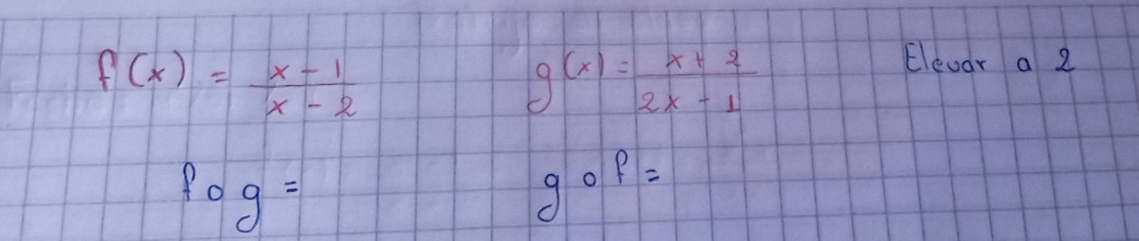 f(x) = x - 1 / x - 2    g(x) = x + 2 / 2x - 1    Elevar a 2
f o g =    g o f =